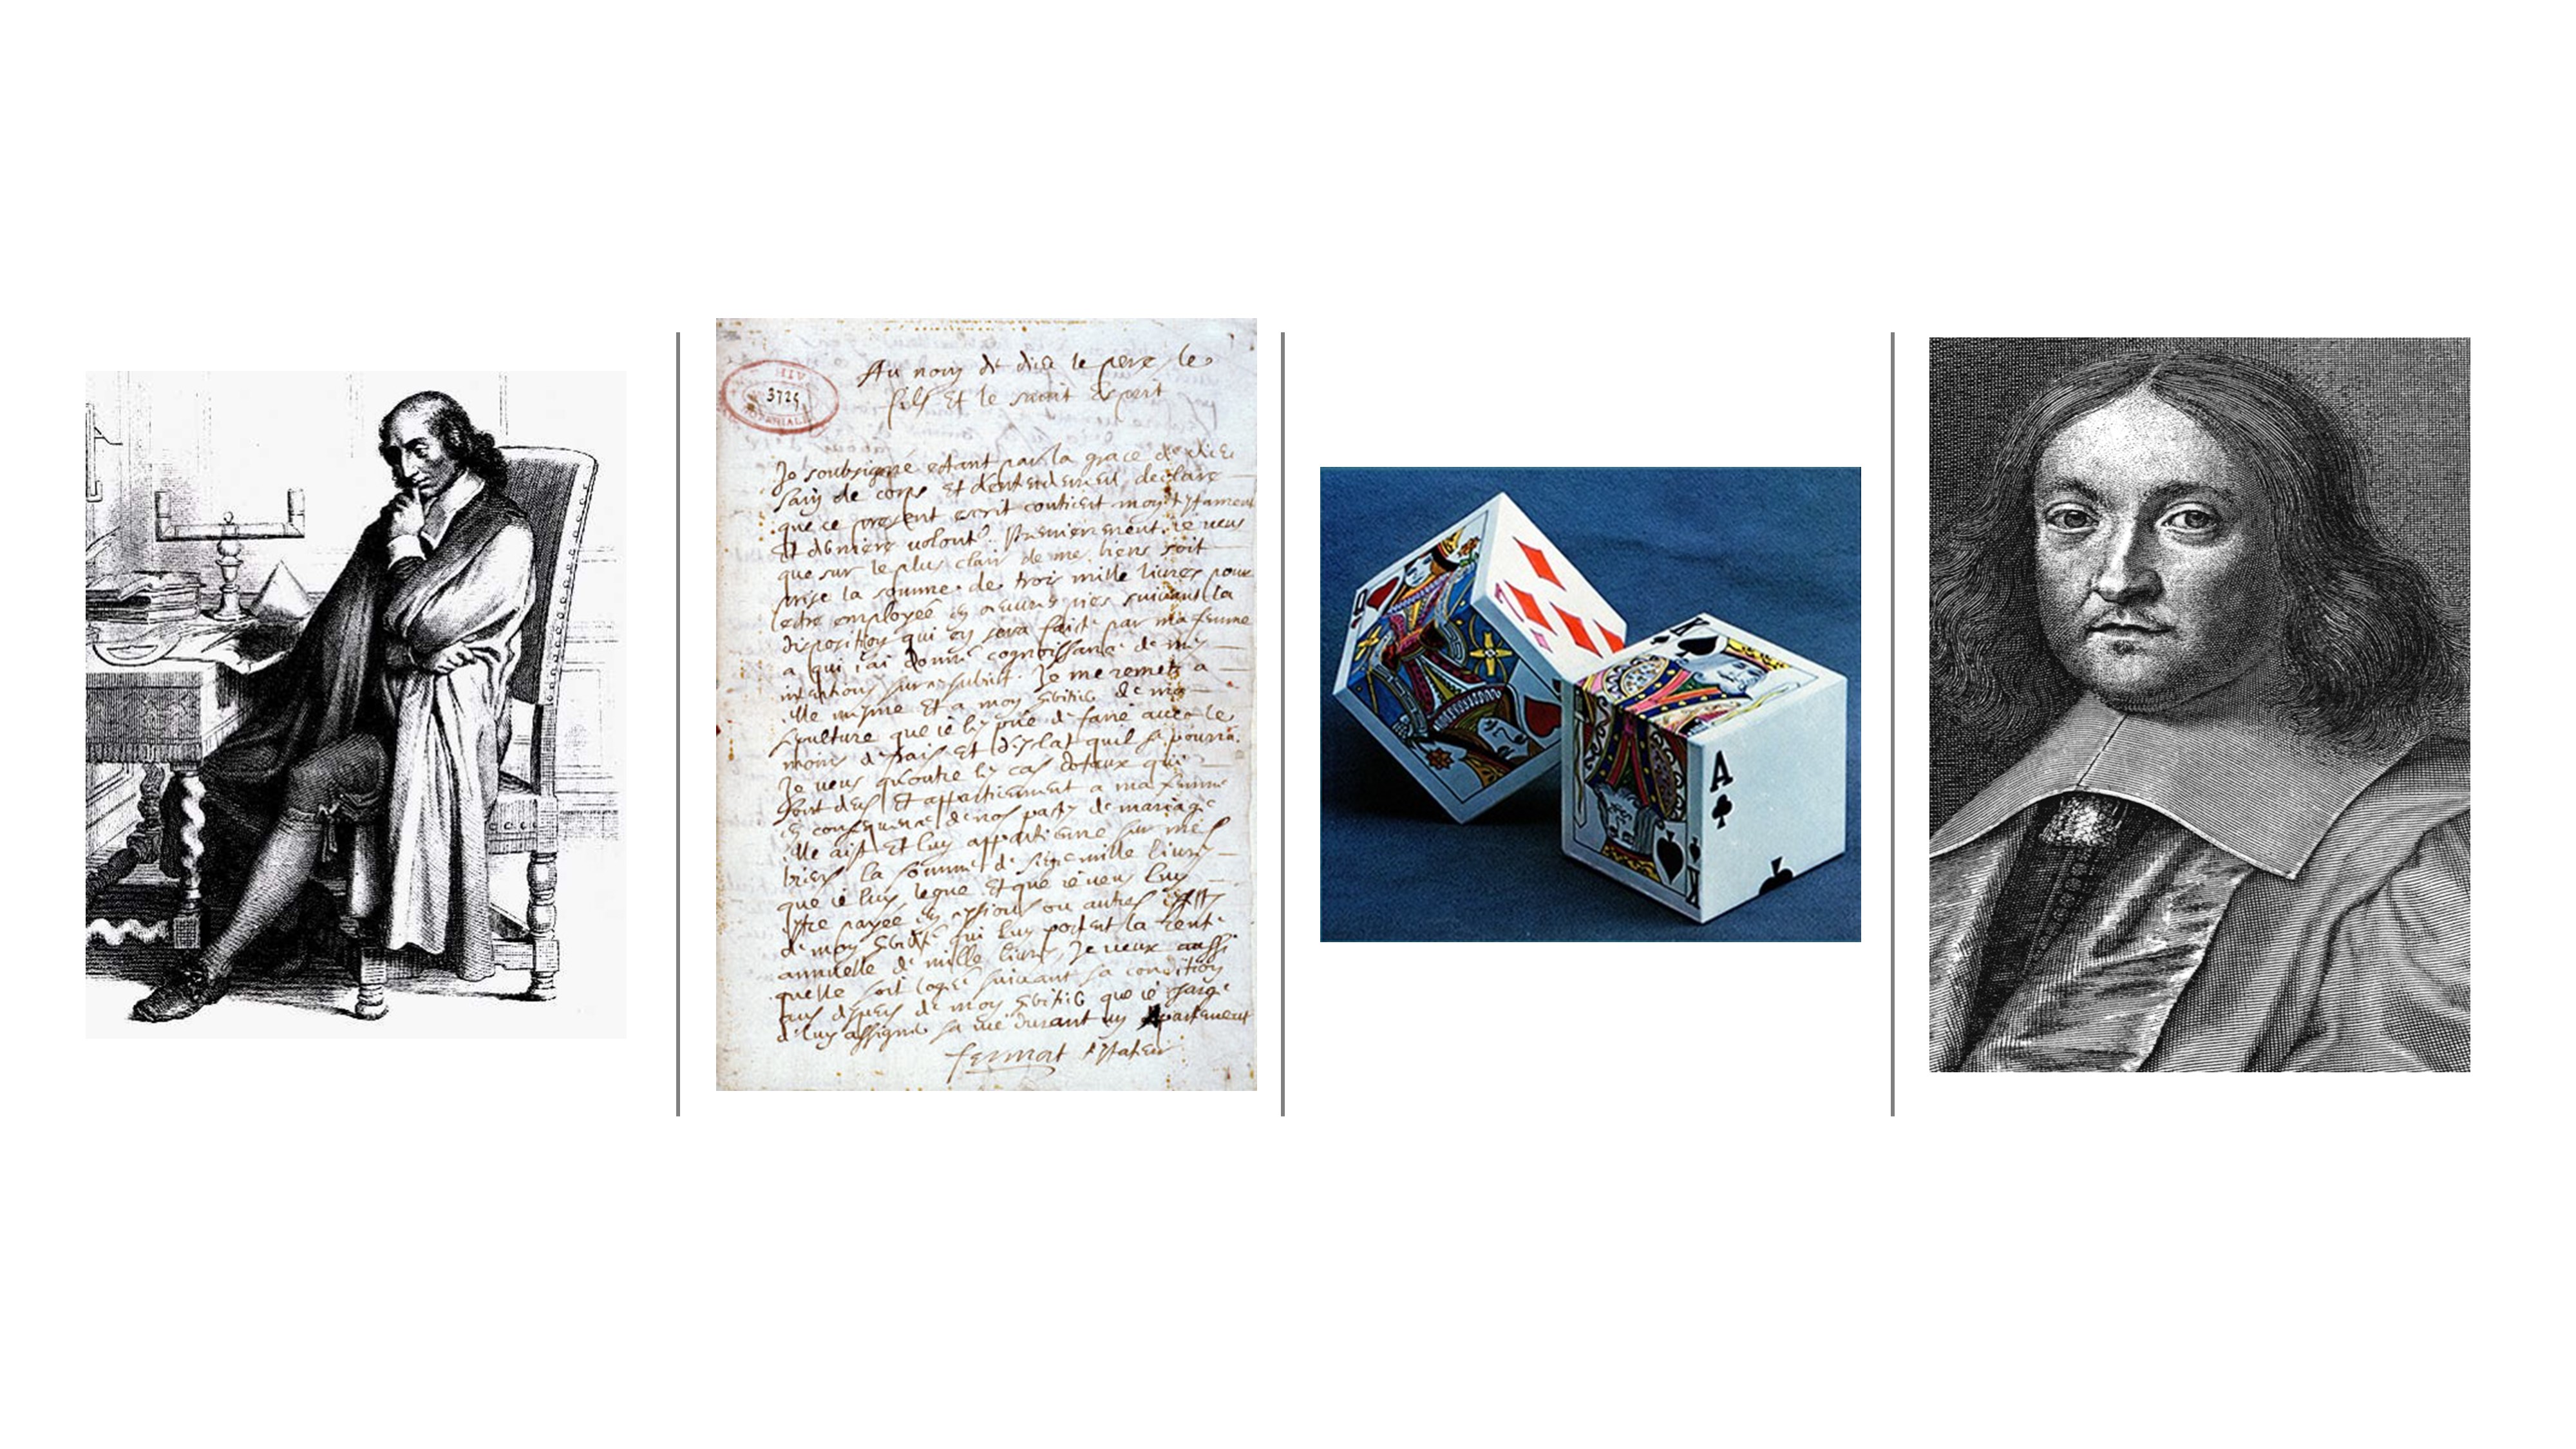 HIV
3725
Au nom de dieu le pere le
fils Et le saint Esprit
Je soubsigné estant par la grace de dieu
sain de corps Et dentendement declare
que ce present escrit contient mon testament
Et derniere volonté. Premierement Je veus
que sur le plus clair de mes biens soit
prise la somme de trois mille livres pour
estre employée en œuvres pies suivant la
disposition qui en sera faicte par ma femme
a qui j'ai donné cognoissance de mes
intentions sur ce subiet. Je me remets a
elle mesme Et a mon de ma
sepulture que ie les prie de faire avec le
moins de frais Et d'esclat quil se pourra.
Je veus qu'outre les cas dotaux qui
sont deus Et appartienent a ma femme
en consequence de nos pactes de mariage
elle aist Et luy apartiene sur mes
biens la somme de mille livres
que ie luy legue Et que ie veus luy
estre payée en ou autres
de mon qui luy portent la rente
annuelle de mille livres, Je veux aussi
quelle soit logée suivant sa condition
aus despens de mon que ie charge
d'luy assigner sa vie durant un apartement
fermat testateur
K
A
K